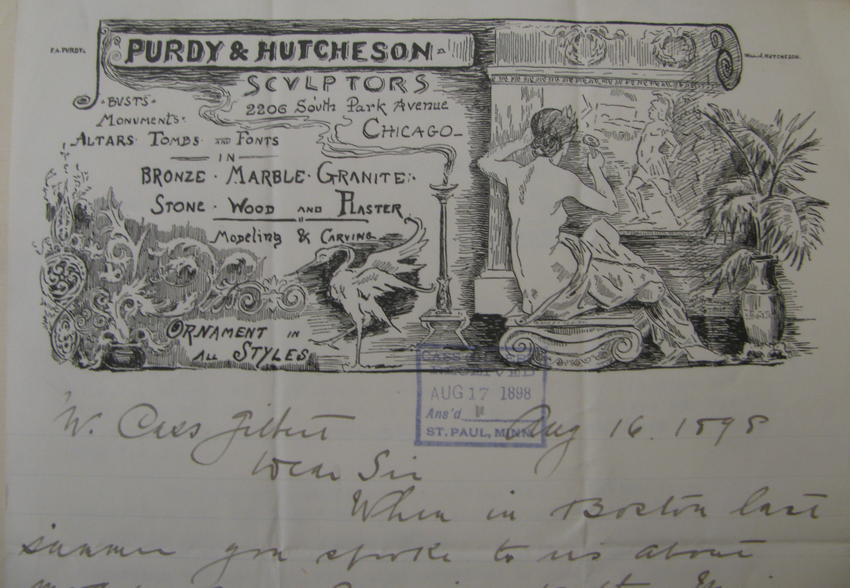 F.A. PURDY.
PURDY & HUTCHESON
Wm. J. HUTCHESON.
SCVLPTORS
2206 South Park Avenue
CHICAGO
BUSTS
MONUMENTS
ALTARS TOMBS AND FONTS
IN
BRONZE · MARBLE · GRANITE
STONE · WOOD AND PLASTER
MODELING & CARVING
ORNAMENT IN
ALL STYLES
CASS GILBERT
RECEIVED
AUG 17 1898
Ans'd
ST. PAUL, MINN.
Cass Gilbert
Aug 16. 1898
Dear Sir
When in Boston last
summer you spoke to us about